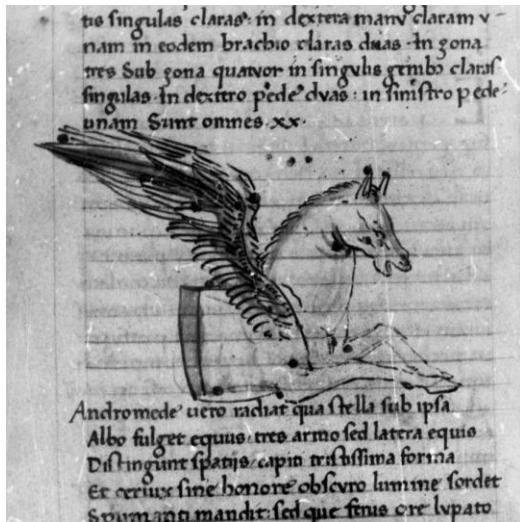 tis singulas claras· in dextera manu claram v-
nam in eodem brachio claras duas· In zona
tres Sub zona quatuor in singulis genibus claras
singulas· In dextro pede duas· in sinistro pede·
unam Sunt omnes·xx·
Andromede uero radiat qua stella sub ipsa
Albo fulget equus· tres armo sed latera equis
Distingunt spatiis· capiti tristissima forma
Et ceruix sine honore obscuro lumine sordet
Spumanti mandit· sed que ferus ore lupato